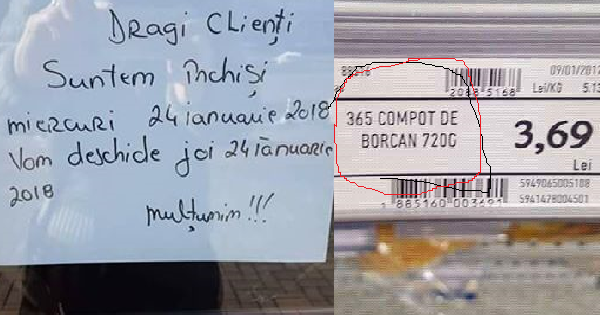 Dragi Clienți
Suntem închiși
miercuri 24 ianuarie 2018
Vom deschide joi 24 ianuarie
2018
mulțumim!!!
09/01/201
2088 5168 Lei/KG 5.13
365 COMPOT DE
BORCAN 720G
3,69
Lei
5949065005108
885160 003691
5941478004501